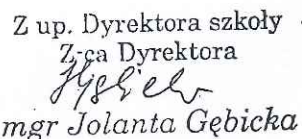 Z up. Dyrektora szkoły
Z-ca Dyrektora
mgr Jolanta Gębicka